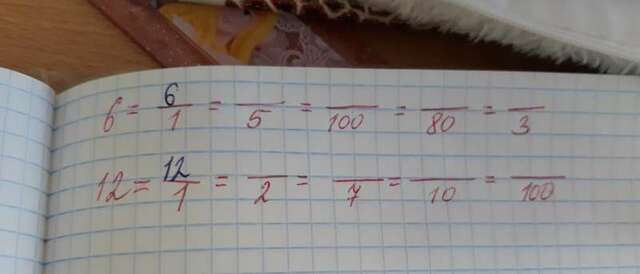 6 = 6/1 = /5 = /100 = /80 = /3
12 = 12/1 = /2 = /7 = /10 = /100